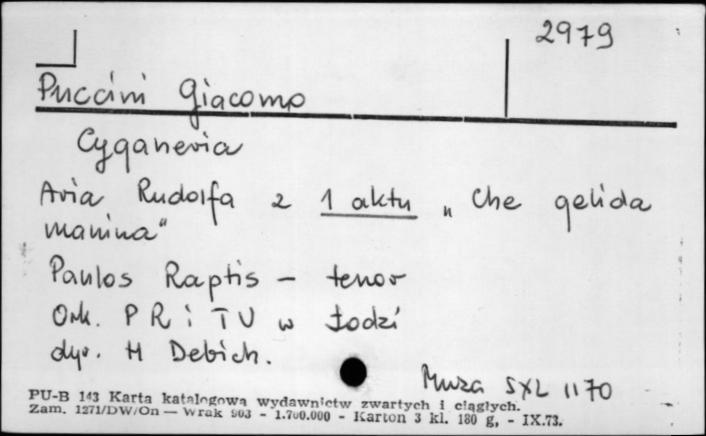 2979
Puccini Giacomo
Cyganeria
Aria Rudolfa z 1 aktu „Che gelida
manina"
Paulos Raptis – tenor
Ork. PR i TV w Łodzi
dyr. H Debich.
Muza SXL 1170
PU-B 143 Karta katalogowa wydawnictw zwartych i ciągłych.
Zam. 1271/DW/On — Wrak 903 - 1.700.000 - Karton 3 kl. 180 g, - IX.73.